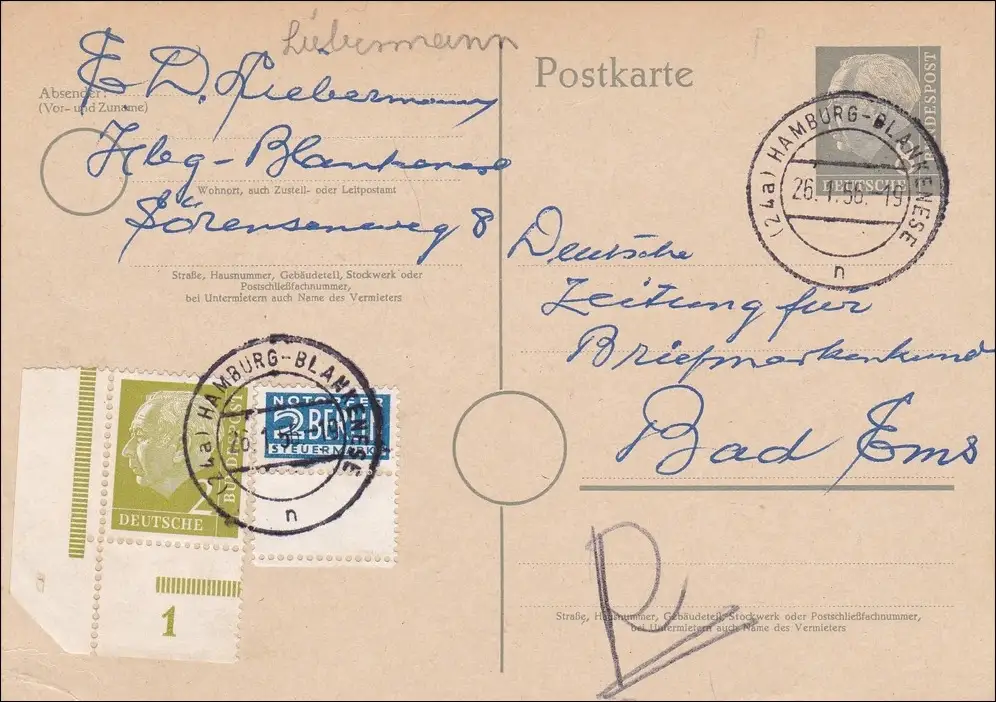 Lübermann
E D. Liebermann
Absender:
(Vor- und Zuname)
Hbg-Blankenese
Wohnort, auch Zustell- oder Leitpostamt
Sörensenweg 8
Straße, Hausnummer, Gebäudeteil, Stockwerk oder
Postschließfachnummer,
bei Untermietern auch Name des Vermieters
Postkarte
DEUTSCHE
BUNDESPOST
(24a) HAMBURG-BLANKENESE
26.1.56.-19
n
Deutsche
Zeitung für
Briefmarkenkunde
Bad Ems
Straße, Hausnummer, Gebäudeteil, Stockwerk oder Postschließfachnummer,
bei Untermietern auch Name des Vermieters
DEUTSCHE
BUNDESPOST
2
1
NOTOPFER
2 BERLIN
STEUERMARKE
(24a) HAMBURG-BLANKENESE
26.1.56.-19
n